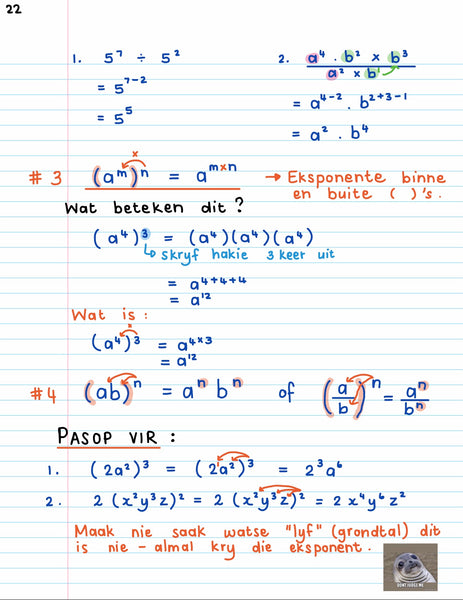 22
1. 5⁷ ÷ 5²
= 5⁷⁻²
= 5⁵
2. a⁴ . b² x b³ / a² x b¹
= a⁴⁻² . b²⁺³⁻¹
= a² . b⁴
x
# 3 (aᵐ)ⁿ = aᵐˣⁿ → Eksponente binne
en buite ( )'s.
Wat beteken dit?
(a⁴)³ = (a⁴)(a⁴)(a⁴)
↳ skryf hakie 3 keer uit
= a⁴⁺⁴⁺⁴
= a¹²
Wat is :
x
(a⁴)³ = a⁴ˣ³
= a¹²
#4 (ab)ⁿ = aⁿ bⁿ of (a/b)ⁿ = aⁿ/bⁿ
PASOP VIR :
1. (2a²)³ = (2¹a²)³ = 2³a⁶
2. 2 (x²y³z)² = 2 (x²y³z)² = 2 x⁴y⁶z²
Maak nie saak watse "lyf" (grondtal) dit
is nie - almal kry die eksponent.
DONT JUDGE ME